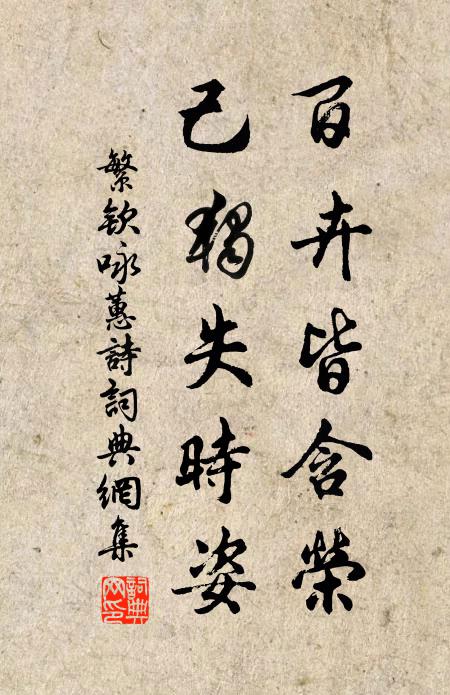 百卉皆含榮
己獨失時姿
繁欽咏蕙詩詞典網集
詞典
网印